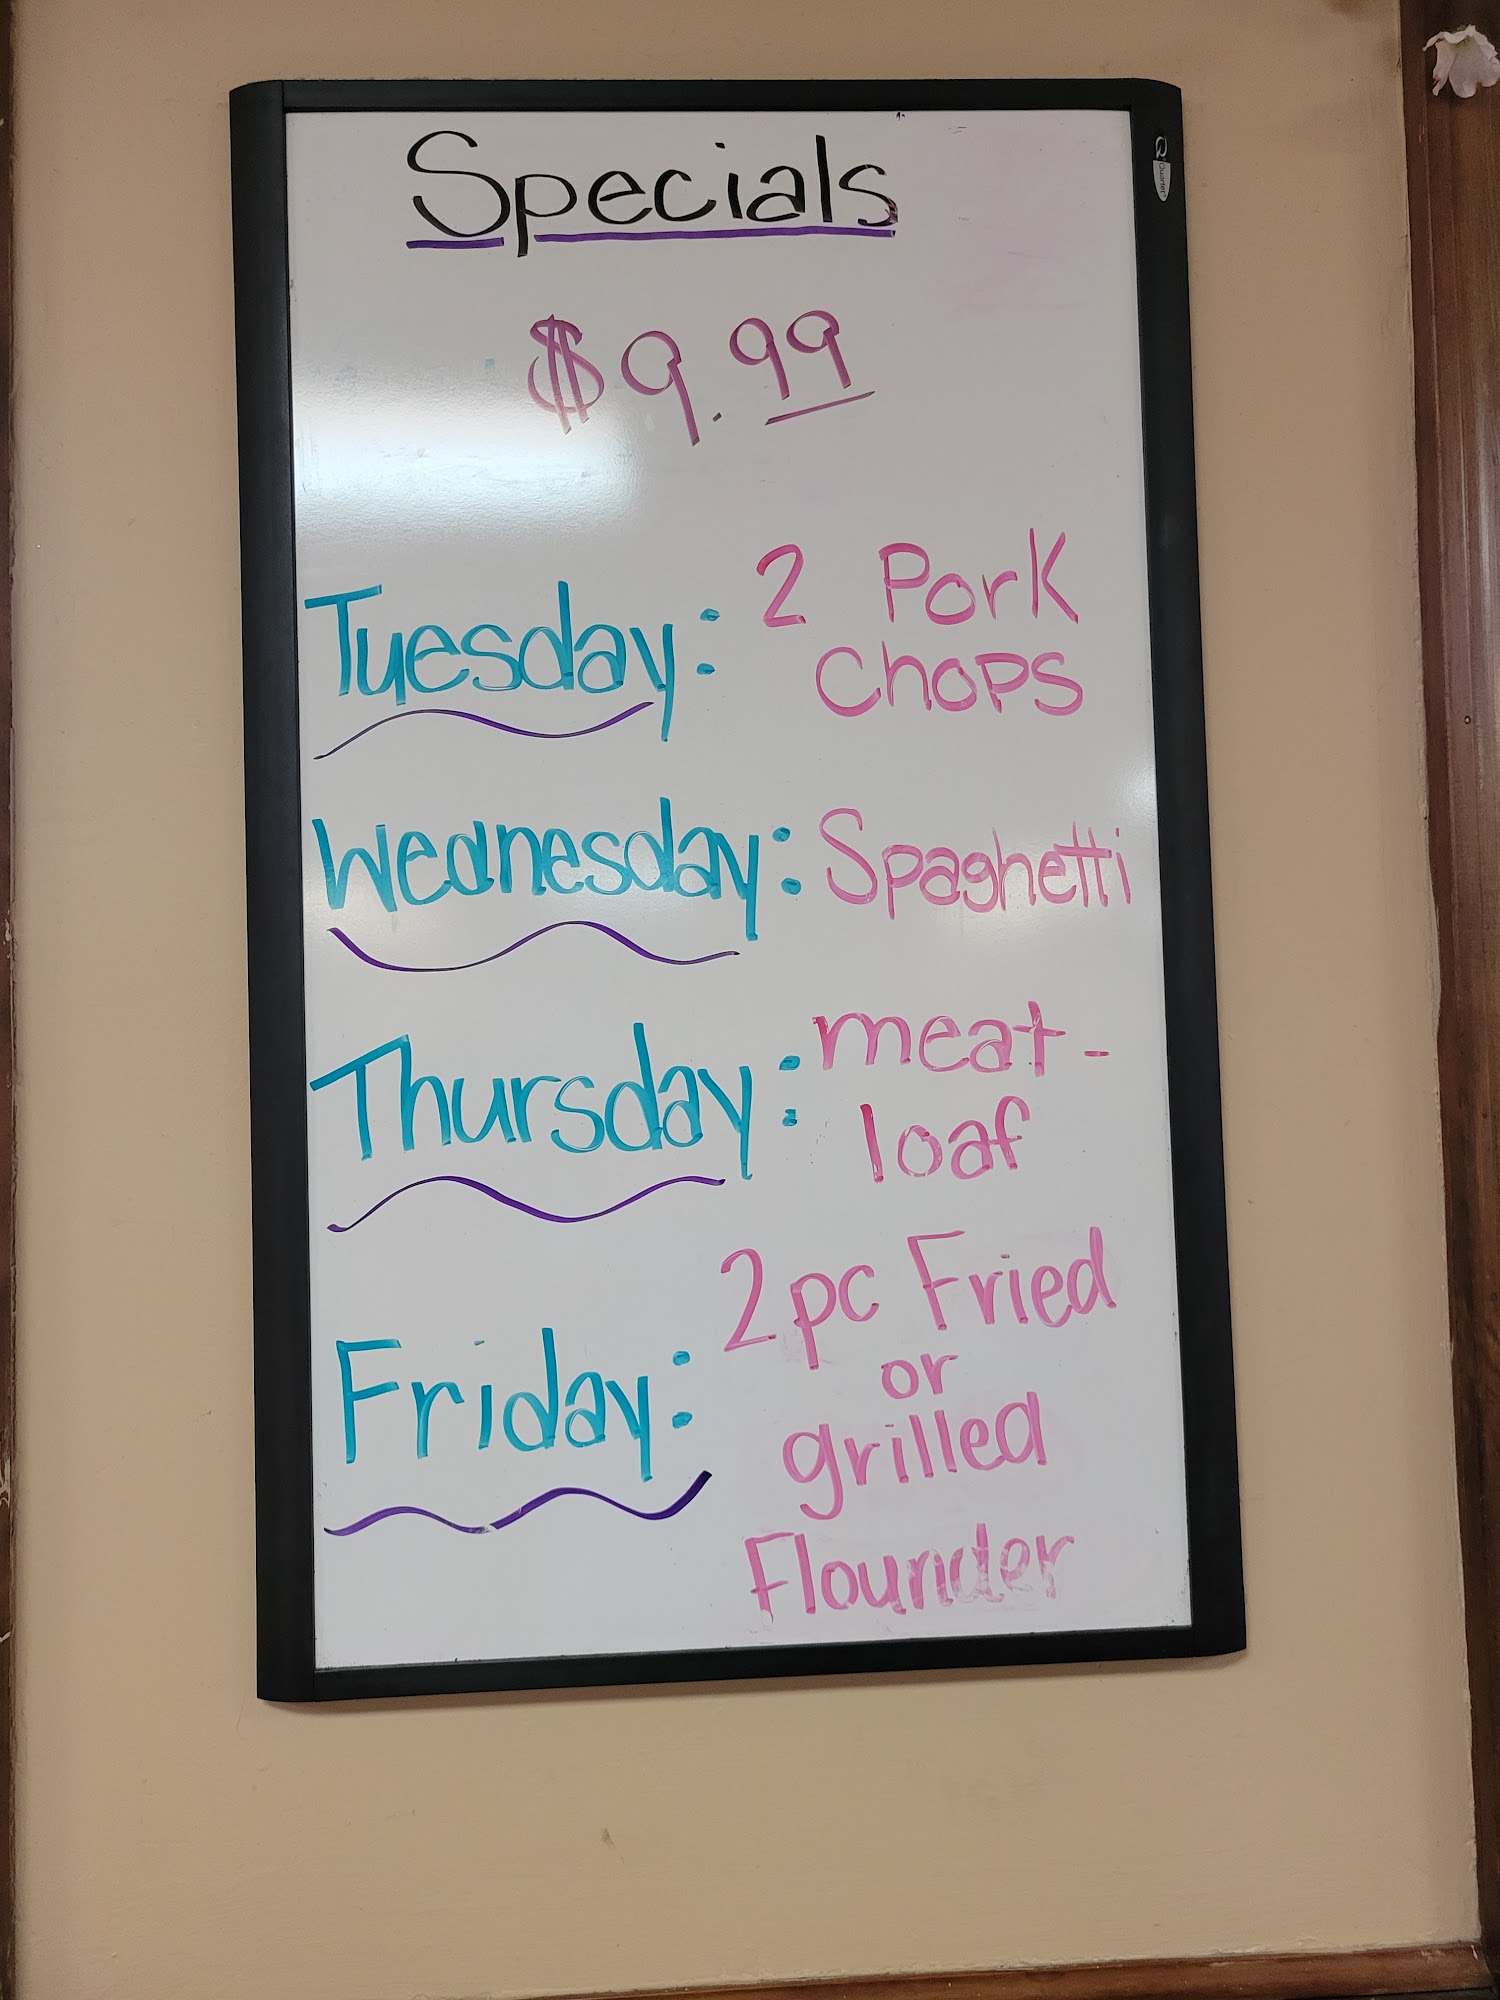 Specials
$9.99
Tuesday: 2 Pork
Chops
Wednesday: Spaghetti
Thursday: meat-
loaf
Friday: 2pc Fried
or
grilled
Flounder
Quartet